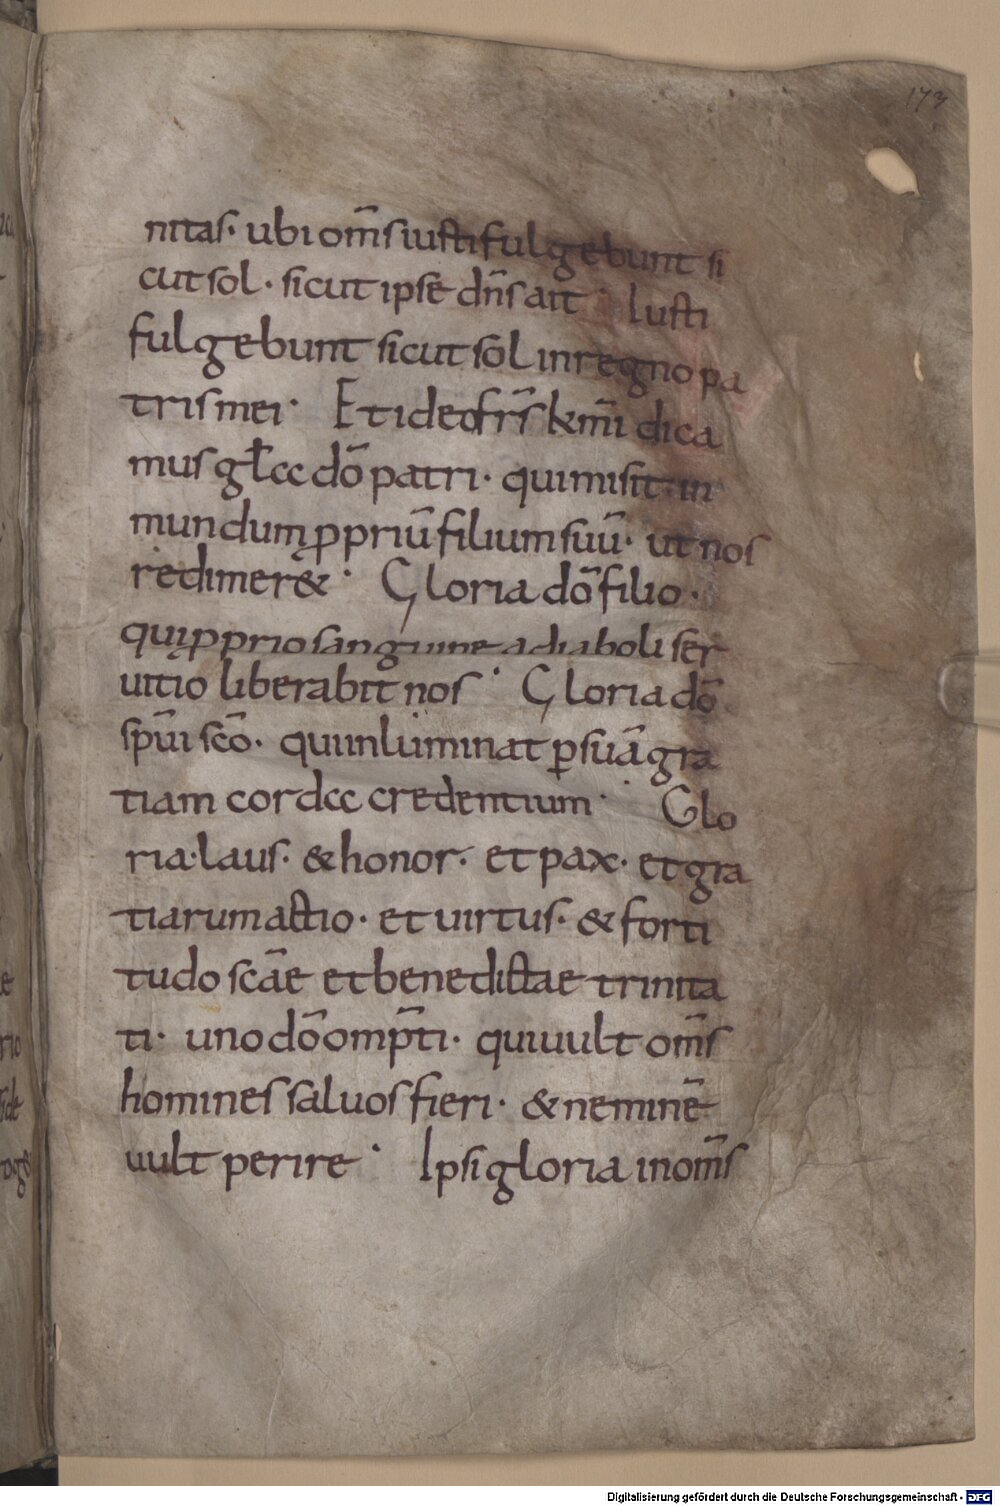 173
nitas· ubi om̄s iusti fulgebunt si
cut sol· sicut ipse dn̄s ait· Iusti
fulgebunt sicut sol in regno pa
tris mei· Et ideo fr̄s km̄i dica
mus gła dō patri· qui misit in
mundum ꝓprium filium suū· ut nos
redimer&· Gloria dō filio·
qui ꝓprio sanguine a diaboli ser
uitio liberabit nos· Gloria dō
sp̄ui scō· qui inluminat ꝑ suā gra
tiam corda credentium· Glo
ria· laus· & honor· et pax· et gra
tiarum actio· et uirtus· & forti
tudo scāe et benedictae trinita
ti· uno dō omp̄ti· qui uult om̄s
homines saluos fieri· & neminē
uult perire· Ipsi gloria in om̄s
Digitalisierung gefördert durch die Deutsche Forschungsgemeinschaft - DFG